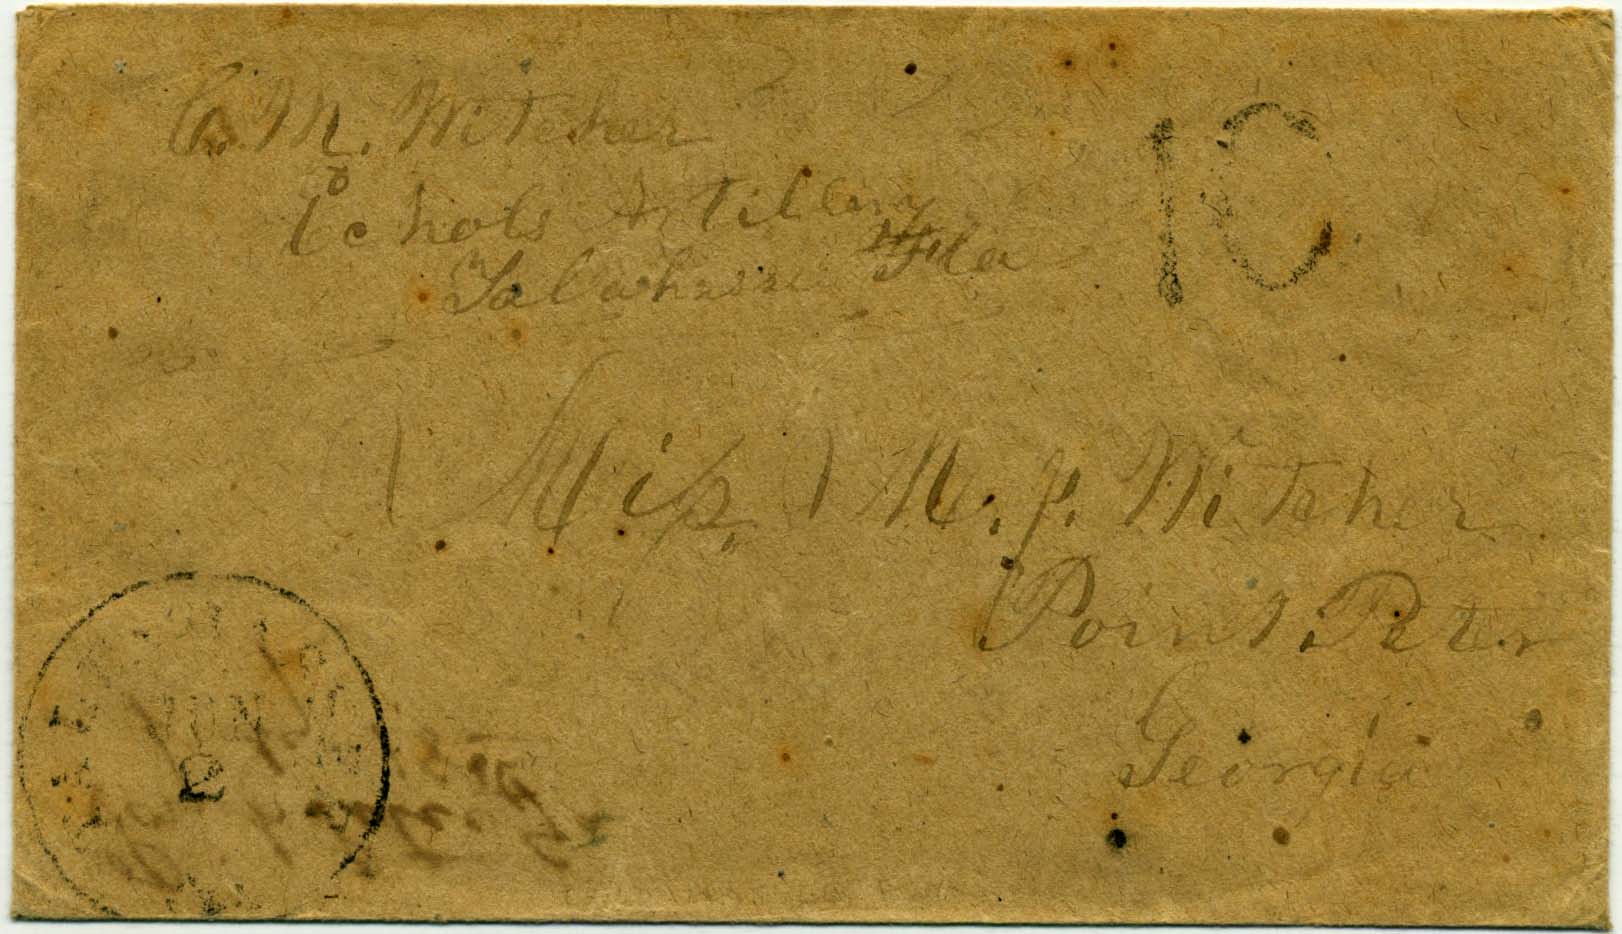 C. M. Witcher
Echols Artillery
Talahassee Fla
10
Miss M. J. Witcher
Point Peter
Georgia
TALLAHASSEE
NOV